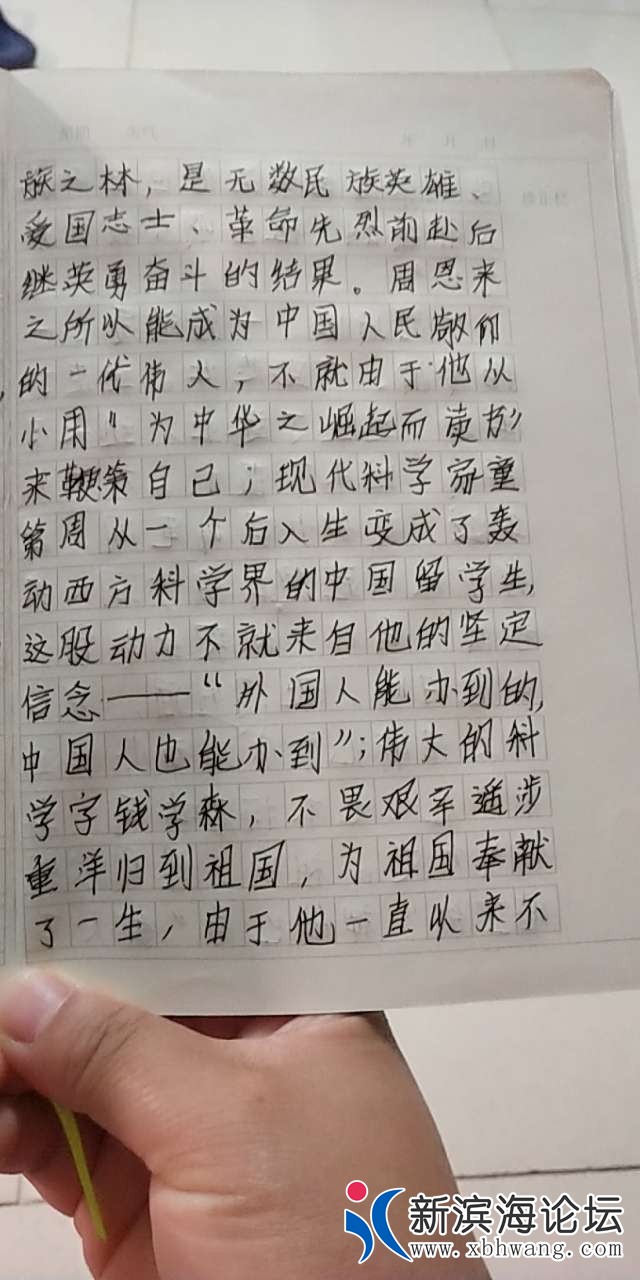 族之林，是无数民族英雄、
爱国志士、革命先烈前赴后
继英勇奋斗的结果。周恩来
之所以能成为中国人民敬仰
的一代伟人，不就由于他从
小用“为中华之崛起而读书”
来鞭策自己；现代科学家童
第周从一个后入生变成了轰
动西方科学界的中国留学生，
这股动力不就来自他的坚定
信念——“外国人能办到的，
中国人也能办到”；伟大的科
学字钱学森，不畏艰辛遥涉
重洋归到祖国，为祖国奉献
了一生，由于他一直以来不
新滨海论坛
www.xbhwang.com